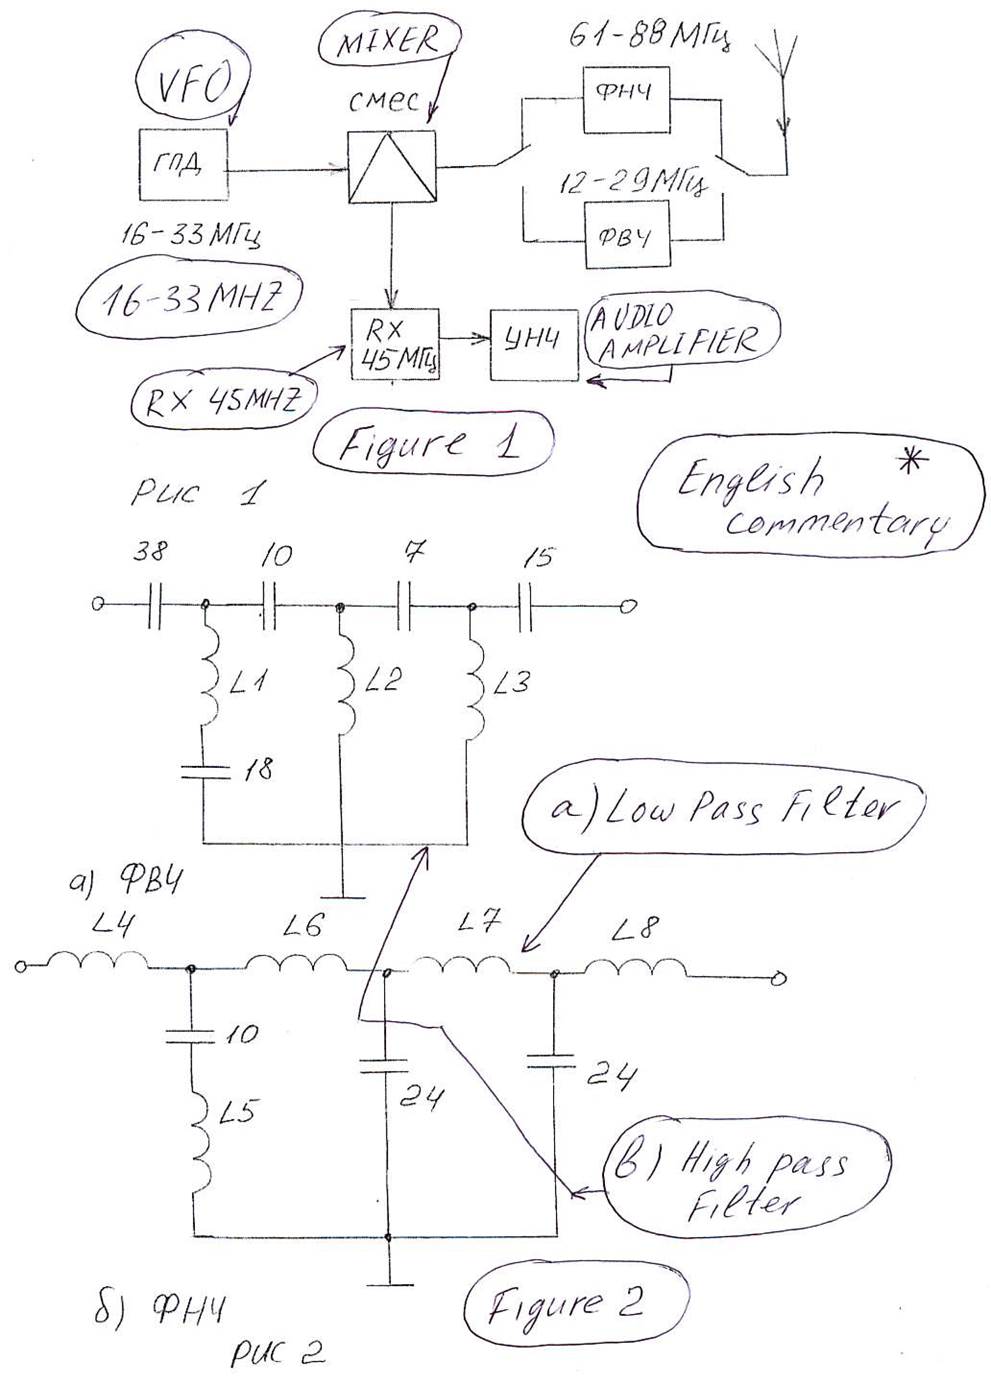 MIXER
61-88 МГц
VFO
смес
ФНЧ
ГПД
12-29 МГц
ФВЧ
16-33 МГц
16-33 MHZ
RX
45 МГц
УНЧ
AUDIO
AMPLIFIER
RX 45 MHZ
Figure 1
English *
commentary
Рис 1
38
10
7
15
L1
L2
L3
18
a) Low Pass Filter
а) ФВЧ
L4
L6
L7
L8
10
24
24
L5
в) High pass
Filter
Figure 2
б) ФНЧ
Рис 2